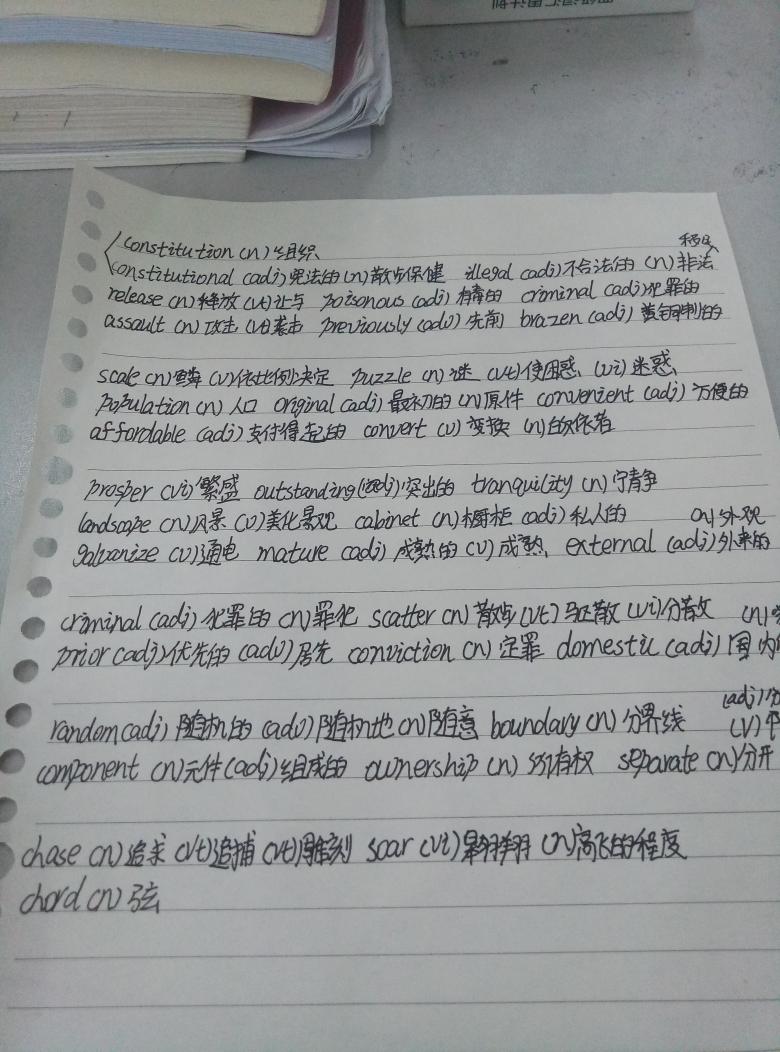 constitution (n) 组织
移民
constitutional (adj) 宪法的 (n) 散步保健 illegal (adj) 不合法的 (n) 非法
release (n) 释放 (vt) 让与 poisonous (adj) 有毒的 criminal (adj) 犯罪的
assault (n) 攻击 (vt) 袭击 previously (adv) 先前 brazen (adj) 黄铜制的
scale (n) 鳞 (v) 依比例决定 puzzle (n) 谜 (vt) 使困惑 (vi) 迷惑
population (n) 人口 original (adj) 最初的 (n) 原件 convenient (adj) 方便的
affordable (adj) 支付得起的 convert (v) 变换 (n) 皈依者
prosper (vi) 繁盛 outstanding (adj) 突出的 tranquility (n) 宁静
landscape (n) 风景 (v) 美化景观 cabinet (n) 橱柜 (adj) 私人的 (n) 外观
galvanize (v) 通电 mature (adj) 成熟的 (v) 成熟 external (adj) 外来的
criminal (adj) 犯罪的 (n) 罪犯 scatter (n) 散步 (vt) 驱散 (vi) 分散 (n)
prior (adj) 优先的 (adv) 居先 conviction (n) 定罪 domestic (adj) 国内
(adj) 分
random (adj) 随机的 (adv) 随机地 (n) 随意 boundary (n) 分界线 (v)
component (n) 元件 (adj) 组成的 ownership (n) 所有权 separate (n) 分开
chase (n) 追求 (vt) 追捕 (vt) 雕刻 soar (vi) 翱翔 (n) 高飞的程度
chord (n) 弦